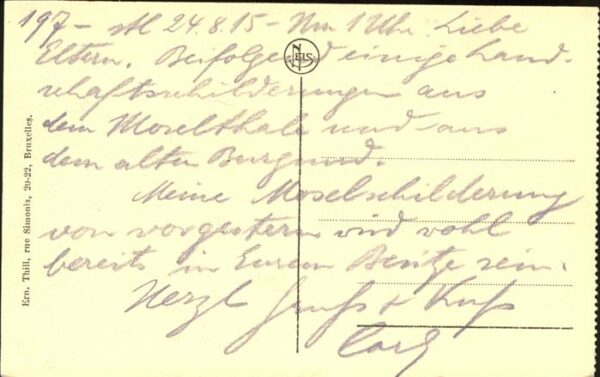 197 - 24.8.15 - Nm 1 Uhr. Liebe
Eltern. Beifolgend einige Land-
schaftsschilderungen aus
dem Moselthale und aus
dem alten Burgund.
Meine Moselschilderung
von vorgestern wird wohl
bereits in Eurem Besitze sein.
Herzl Gruß + Kuß
Carl
NELS
Ern. Thill, rue Simonis, 20-22, Bruxelles.